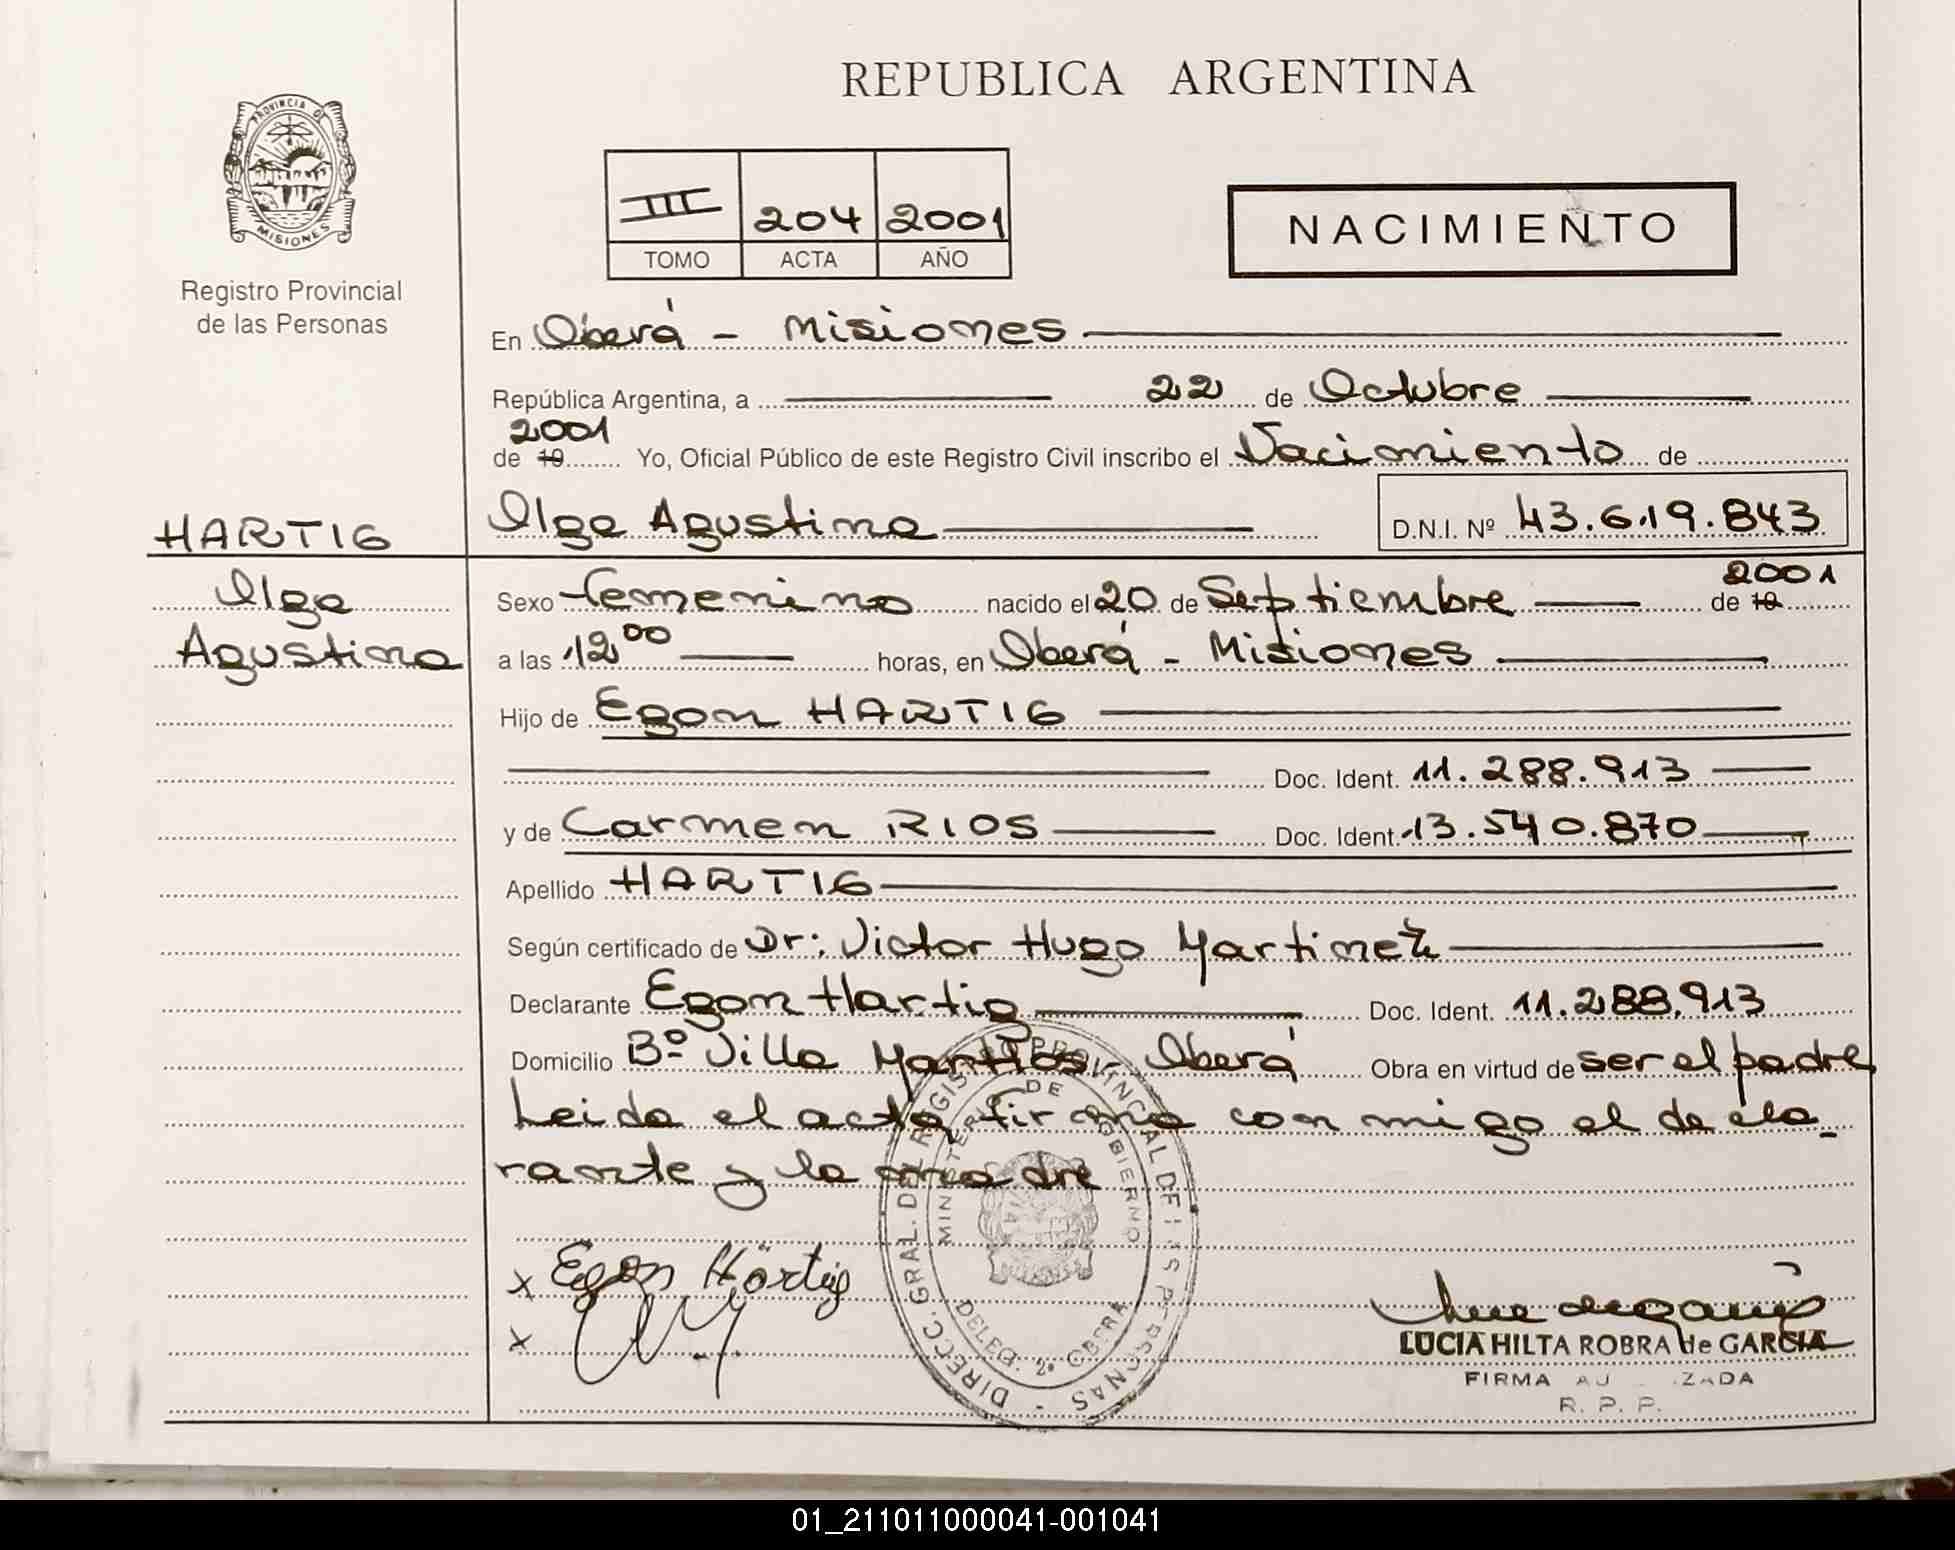 REPUBLICA ARGENTINA
PROVINCIA DE
MISIONES
Registro Provincial
de las Personas
III 204 2001
TOMO ACTA AÑO
NACIMIENTO
En Oberá - Misiones
República Argentina, a 22 de Octubre
2001
de 19 Yo, Oficial Público de este Registro Civil inscribo el Nacimiento de
HARTIG
Olga Agustina D.N.I. Nº 43.619.843
Olga
Agustina
2001
Sexo femenino nacido el 20 de Septiembre de 19
a las 12 00 horas, en Oberá - Misiones
Hijo de Egon HARTIG
Doc. Ident. 11.288.913
y de Carmen RIOS Doc. Ident. 13.540.870
Apellido HARTIG
Según certificado de Dr: Victor Hugo Martinez
Declarante Egon Hartig Doc. Ident. 11.288.913
Domicilio Bº Villa Martitos Oberá Obra en virtud de ser el padre
Leida el acta firma con migo el decla-
rante y la madre
DIRECC. GRAL. DEL REGISTRO PROVINCIAL DE LAS PERSONAS
MINISTERIO DE GOBIERNO
DELEG. 2ª OBERA
x Egon Hartig
x
LUCIA HILTA ROBRA de GARCIA
FIRMA AU ZADA
R. P. P.
01_211011000041-001041